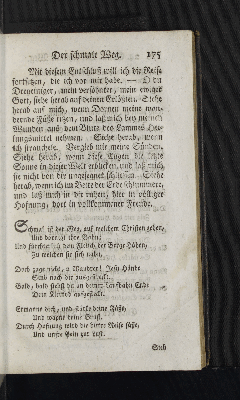 Der schmale Weg. 175
Mit diesem Entschluß will ich die Reise
fortsetzen, die ich vor mir habe. — O du
Dreyeiniger, mein versöhnter, mein ewiger
Gott, siehe herab auf deinen Erlösten. Siehe
herab auf mich, wenn Dornen meine wan-
dernde Füße ritzen, und laß mich bey meinen
Wunden aus dem Blute des Lammes Hei-
lungsmittel nehmen. Siehe herab, wenn
ich strauchele. Vergieb mir meine Sünden.
Siehe herab, wenn diese Augen die letzte
Sonne in dieser Welt erblicken, und laß mich
sie nicht von dir ungesegnet schließen. Siehe
herab, wenn ich im Bette der Erde schlummere,
und laß mich in dir ruhen, hier in völliger
Hofnung, dort in vollkommener Freude.
Schmal ist der Weg, auf welchem Christen gehen,
Und dornicht ihre Bahn;
Und fürchterlich dem Fleisch der Berge Höhen,
Zu welchen sie sich nahn.
Doch zage nicht, o Wandrer! Jesu Hände
Sind nach dir ausgestreckt.
Bald, bald siehst du an deiner Laufbahn Ende
Dein Kleinod aufgesteckt.
Ermanne dich, und stärke deine Füße,
Und wapne deine Brust.
Durch Hofnung wird dir diese Reise süße,
Und
Sieh